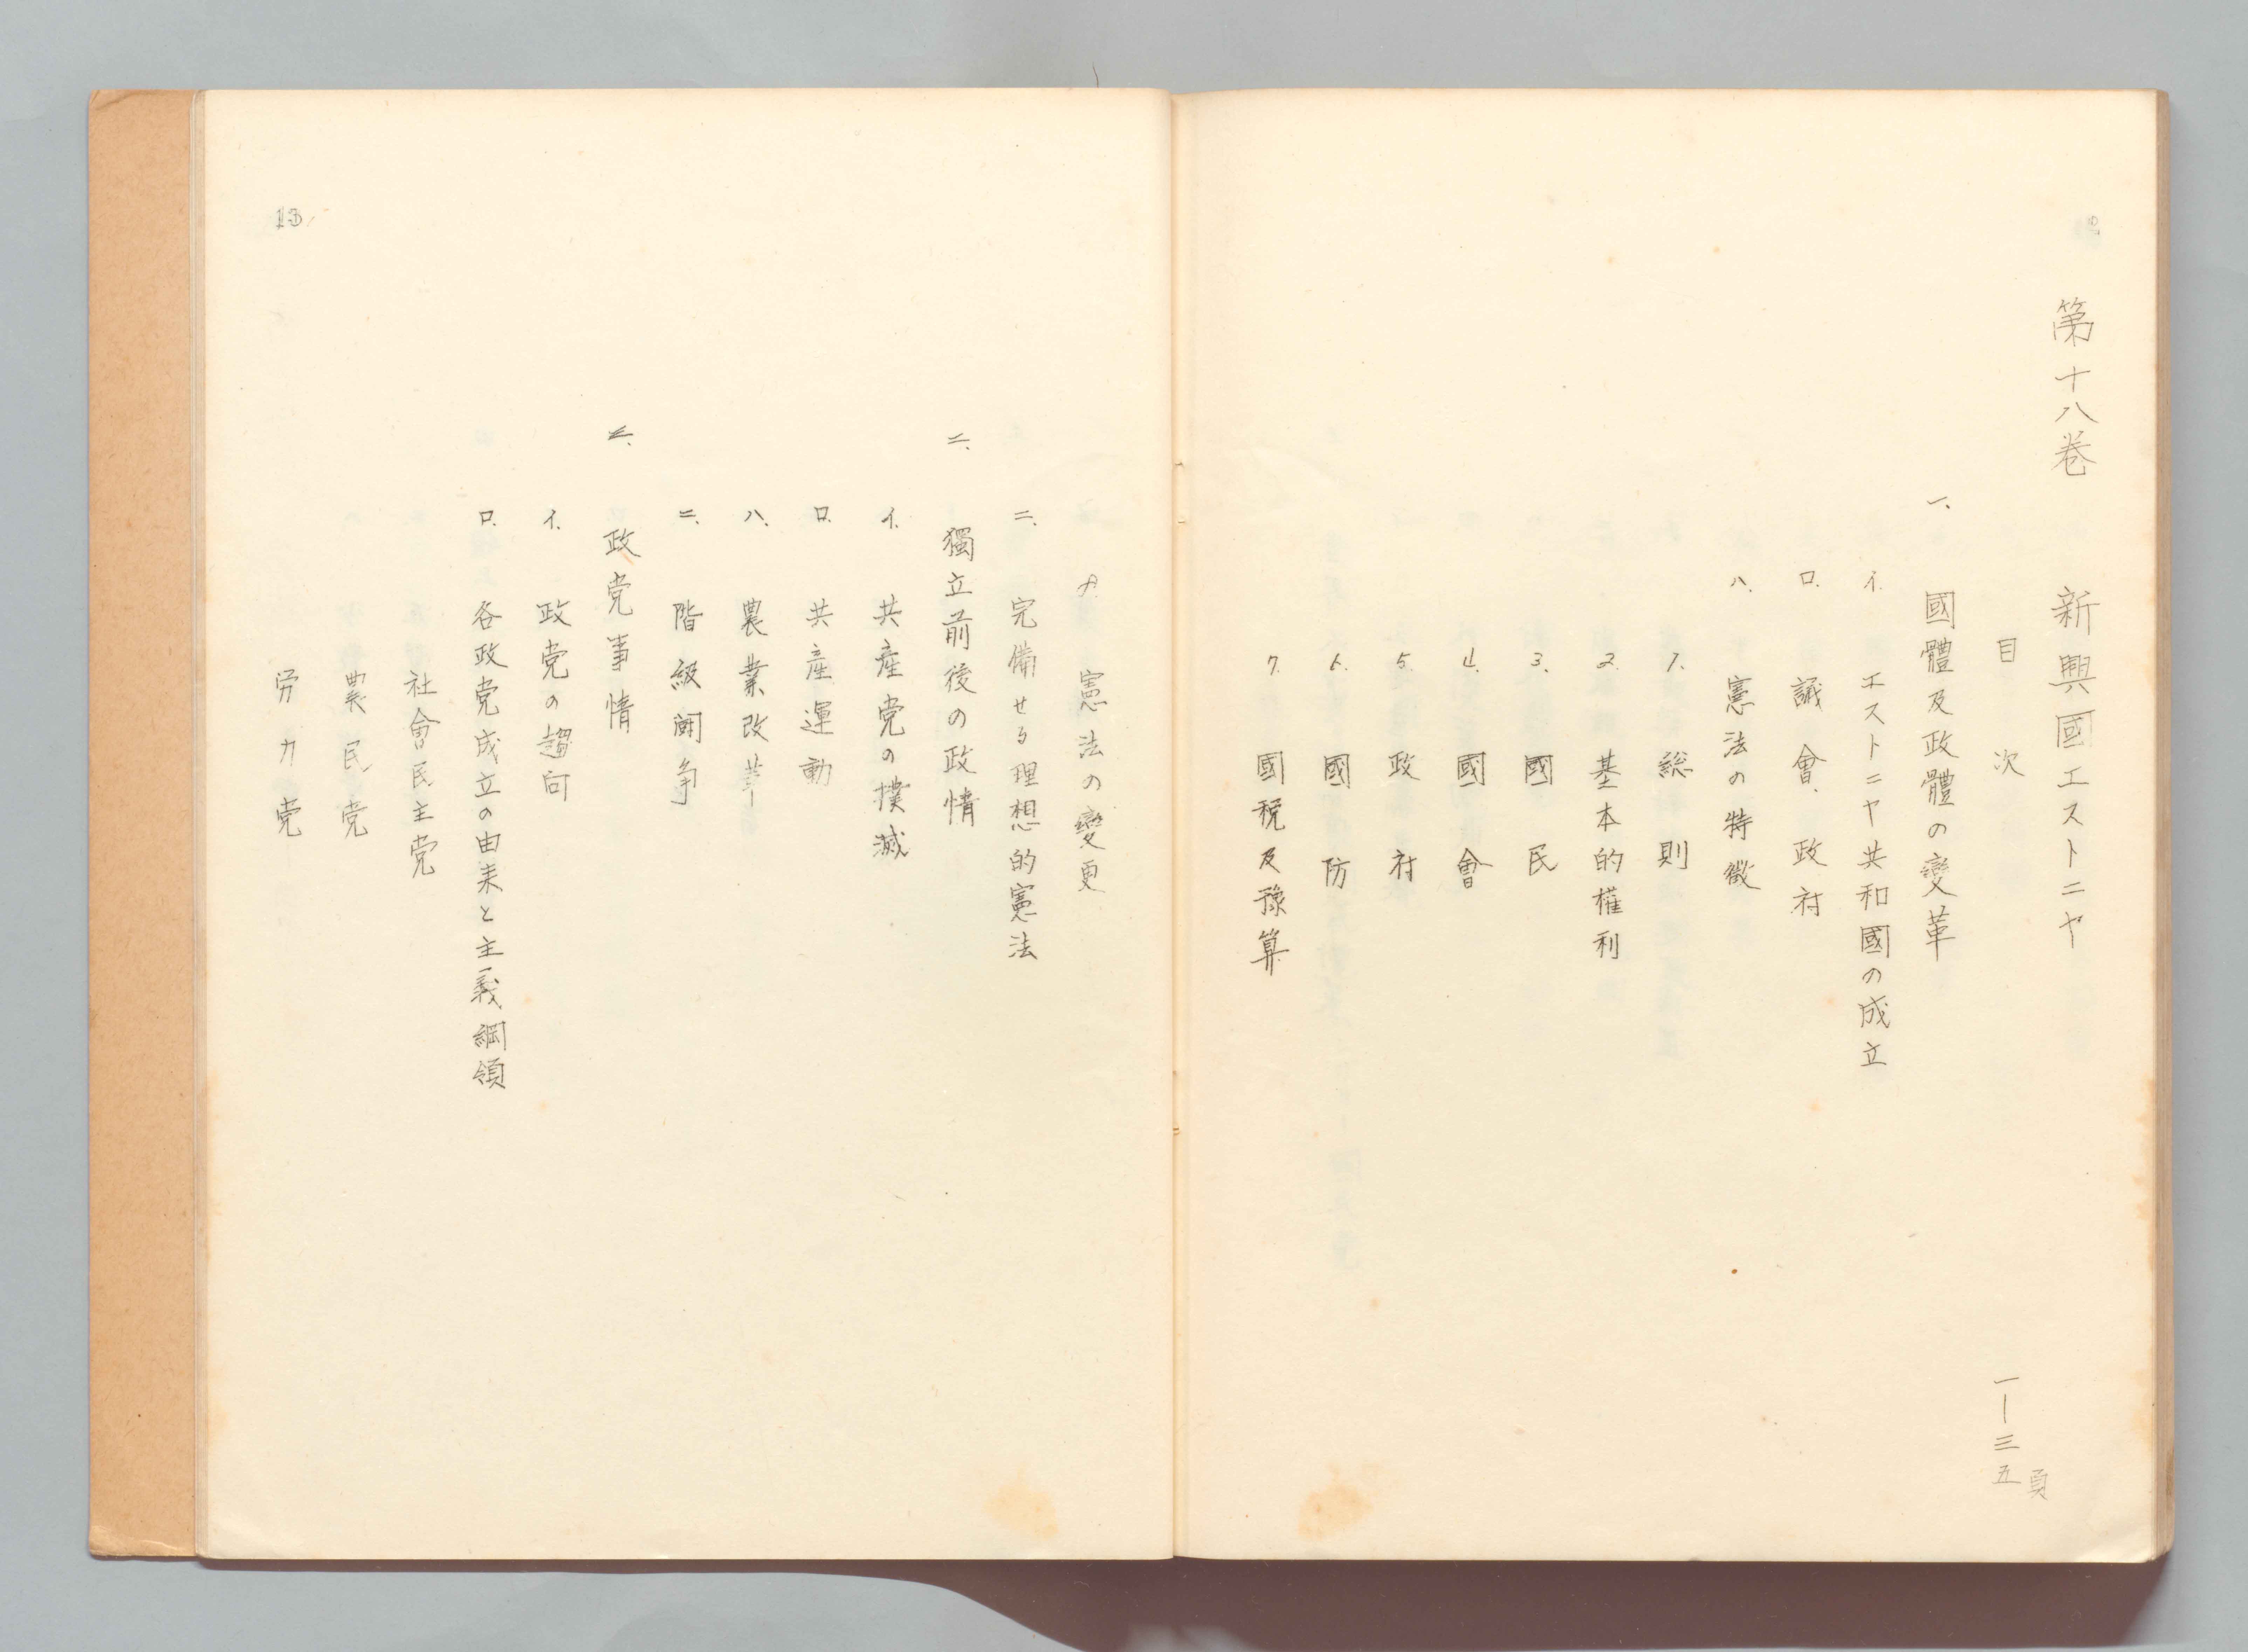 第十八巻　新興國エストニヤ
目次　一―三五頁
一、國體及政體の變革
イ、エストニヤ共和國の成立
ロ、議會、政府
ハ、憲法の特徴
1、総則
2、基本的權利
3、國民
4、國會
5、政府
6、國防
7、國税及豫算
8、憲法の變更
ニ、完備せる理想的憲法
二、獨立前後の政情
イ、共産党の撲滅
ロ、共産運動
ハ、農業改革
ニ、階級闘争
三、政党事情
イ、政党の趨向
ロ、各政党成立の由来と主義綱領
社會民主党
農民党
労力党
13